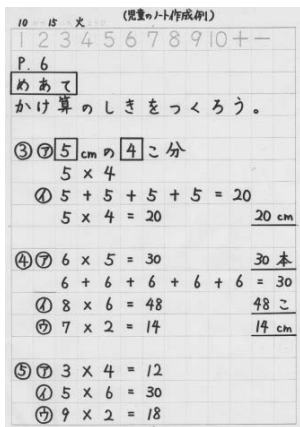 (児童のノート作成例1)
10 - 15 火
1 2 3 4 5 6 7 8 9 10 + -
P. 6
めあて
かけ算のしきをつくろう。
③㋐ 5 cmの 4 こ分
5 × 4
㋑ 5 + 5 + 5 + 5 = 20
5 × 4 = 20 20 cm
④㋐ 6 × 5 = 30 30 本
6 + 6 + 6 + 6 + 6 = 30
㋑ 8 × 6 = 48 48 こ
㋒ 7 × 2 = 14 14 cm
⑤㋐ 3 × 4 = 12
㋑ 5 × 6 = 30
㋒ 9 × 2 = 18